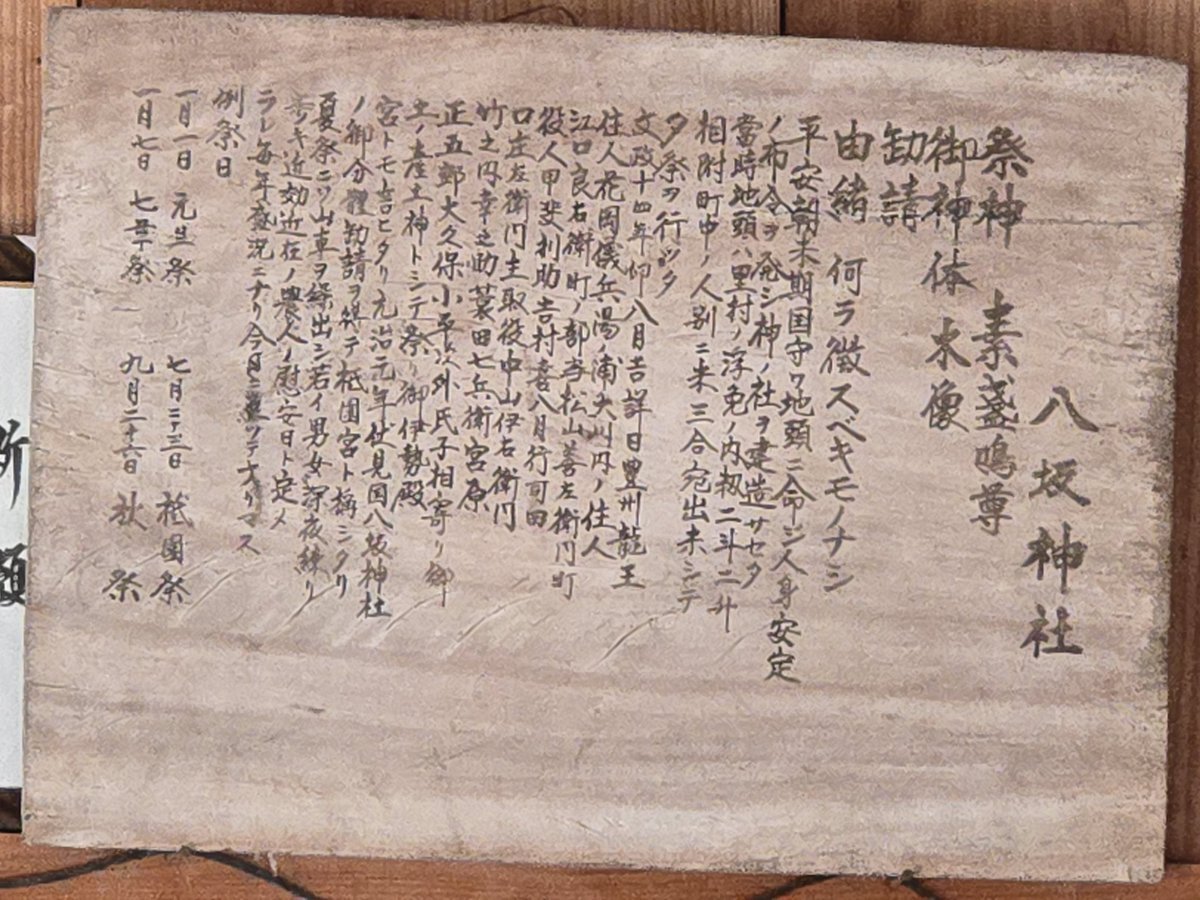 八坂神社
祭神 素盞鳴尊
御神体 木像
勧請
由緒 何ラ徴スベキモノナシ
平安朝末期国守ワ地頭ニ命ジ人身安定
ノ布令ヲ発シ神ノ社ヲ建造サセタ
當時地頭ハ里村ノ浮免ノ内籾二斗二升
相附町中ノ人別ニ米三合宛出来シテ
夕祭ヲ行ッタ
文政十四年卯八月吉詳日豊州龍王
住人花岡儀兵湯ノ浦大川内ノ住人
江口良右衛町ノ部当松山善左衛門町
役人甲斐利助吉村喜八月行司田
口庄左衛門主取役中山伊右衛門
竹之内幸之助蓑田七兵衛宮原
正五郎大久保小平以外氏子相寄リ御
土ノ産土神トシテ祭リ御伊勢殿
宮トモ言ヒタリ元治元年伏見国八坂神社
ノ御分體勧請ヲ得テ祗園宮ト称シタリ
夏祭ニワ山車ヲ繰出シ若イ男女深夜練リ
歩キ近効近在ノ農人ノ慰安日ト定メ
ラレ毎年盛況ニナリ今日ニ至ッテオリマス
例祭日
一月一日 元旦祭 七月二十三日 祗園祭
一月七日 七草祭 九月二十六日 秋祭
祈願